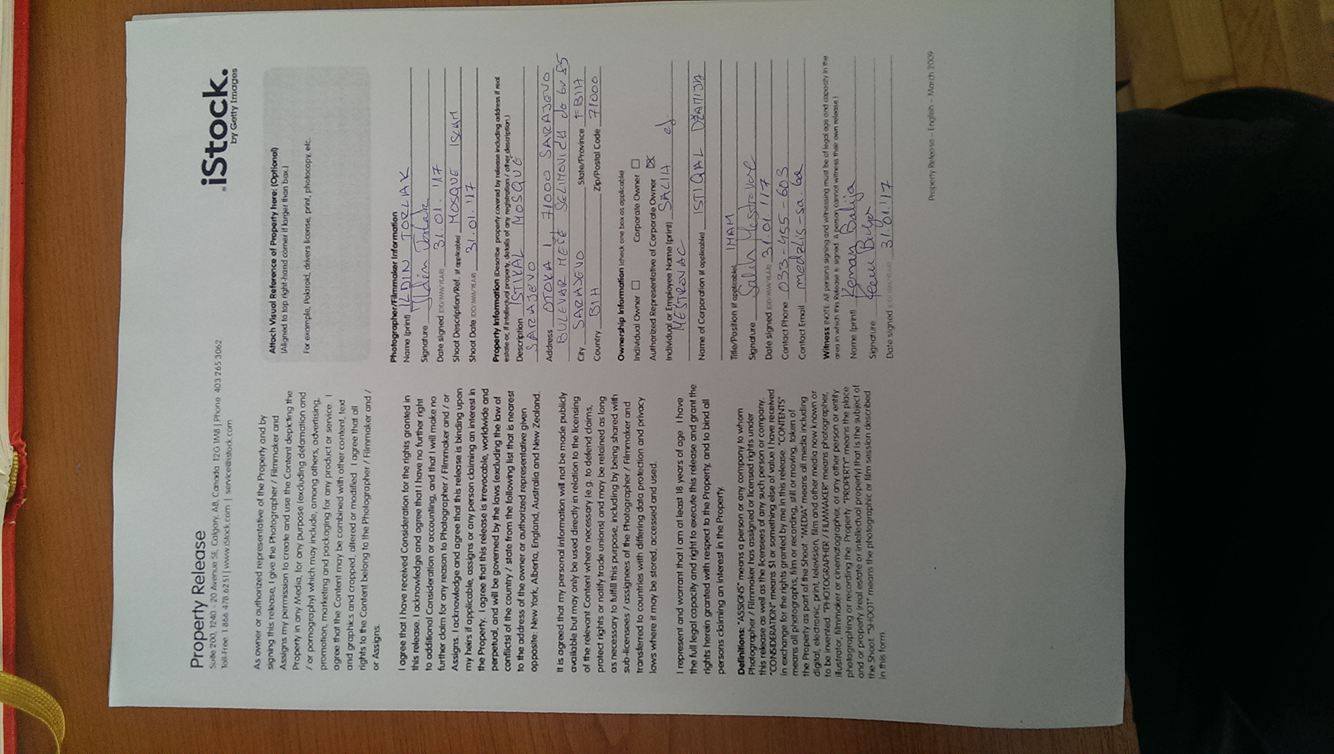 Property Release
Suite 200, 1240 - 20 Avenue SE, Calgary, AB, Canada T2G 1M8 | Phone 403 265 3062
Toll-Free: 1 866 478 6251 | www.iStock.com | service@istock.com
iStock.
by Getty Images
As owner or authorized representative of the Property and by
signing this release, I give the Photographer / Filmmaker and
Assigns my permission to create and use the Content depicting the
Property in any Media, for any purpose (excluding defamation and
/ or pornography) which may include, among others, advertising,
promotion, marketing and packaging for any product or service. I
agree that the Content may be combined with other content, text
and graphics and cropped, altered or modified. I agree that all
rights to the Content belong to the Photographer / Filmmaker and /
or Assigns.
I agree that I have received Consideration for the rights granted in
this release. I acknowledge and agree that I have no further right
to additional Consideration or accounting, and that I will make no
further claim for any reason to Photographer / Filmmaker and / or
Assigns. I acknowledge and agree that this release is binding upon
my heirs if applicable, assigns or any person claiming an interest in
the Property. I agree that this release is irrevocable, worldwide and
perpetual, and will be governed by the laws (excluding the law of
conflicts) of the country / state from the following list that is nearest
to the address of the owner or authorized representative given
opposite: New York, Alberta, England, Australia and New Zealand.
It is agreed that my personal information will not be made publicly
available but may only be used directly in relation to the licensing
of the relevant Content where necessary (e.g. to defend claims,
protect rights or notify trade unions) and may be retained as long
as necessary to fulfill this purpose, including by being shared with
sub-licensees / assignees of the Photographer / Filmmaker and
transferred to countries with differing data protection and privacy
laws where it may be stored, accessed and used.
I represent and warrant that I am at least 18 years of age I have
the full legal capacity and right to execute this release and grant the
rights herein granted with respect to the Property, and to bind all
persons claiming an interest in the Property.
Definitions: "ASSIGNS" means a person or any company to whom
Photographer / Filmmaker has assigned or licensed rights under
this release as well as the licensees of any such person or company.
"CONSIDERATION" means $1 or something else of value I have received
in exchange for the rights granted by me in this release. "CONTENTS"
means all photographs, film or recording, still or moving, taken of
the Property as part of the Shoot. "MEDIA" means all media including
digital, electronic, print, television, film and other media now known or
to be invented. "PHOTOGRAPHER / FILMMAKER" means photographer,
illustrator, filmmaker or cinematographer, or any other person or entity
photographing or recording the Property. "PROPERTY" means the place
and or property (real estate or intellectual property) that is the subject of
the Shoot. "SHOOT" means the photographic or film session described
in this form.
Attach Visual Reference of Property here: (Optional)
(Aligned to top right-hand corner if larger than box.)
For example, Polaroid, drivers license, print, photocopy, etc.
Photographer/Filmmaker Information
Name (print) ILDIN TORLAK
Signature
Date signed (DD/MM/YEAR) 31.01.'17
Shoot Description/Ref. (if applicable) MOSQUE ISLAM
Shoot Date (DD/MM/YEAR) 31.01.'17
Property Information (Describe property covered by release including address if real
estate or, if intellectual property, details of any registration / other description.)
Description ISTIKAL MOSQUE
SARAJEVO
Address OTOKA 1, 71000 SARAJEVO
BULEVAR MEŠE SELIMOVIĆA do br 85
City SARAJEVO State/Province FBIH
Country BIH Zip/Postal Code 71000
Ownership Information (check one box as applicable)
Individual Owner Corporate Owner
Authorized Representative of Corporate Owner
Individual or Employee Name (print) SALIH ef
MEŠTROVAC
Name of Corporation (if applicable) ISTIQAL DŽAMIJA
Title/Position (if applicable) IMAM
Signature
Date signed (DD/MM/YEAR) 31.01.'17
Contact Phone 033-455-603
Contact Email medzlis-sa.ba
Witness (NOTE: All persons signing and witnessing must be of legal age and capacity in the
area in which this Release is signed. A person cannot witness their own release.)
Name (print) Kenan
Signature
Date signed (DD/MM/YEAR) 31.01.'17
Property Release – English – March 2009